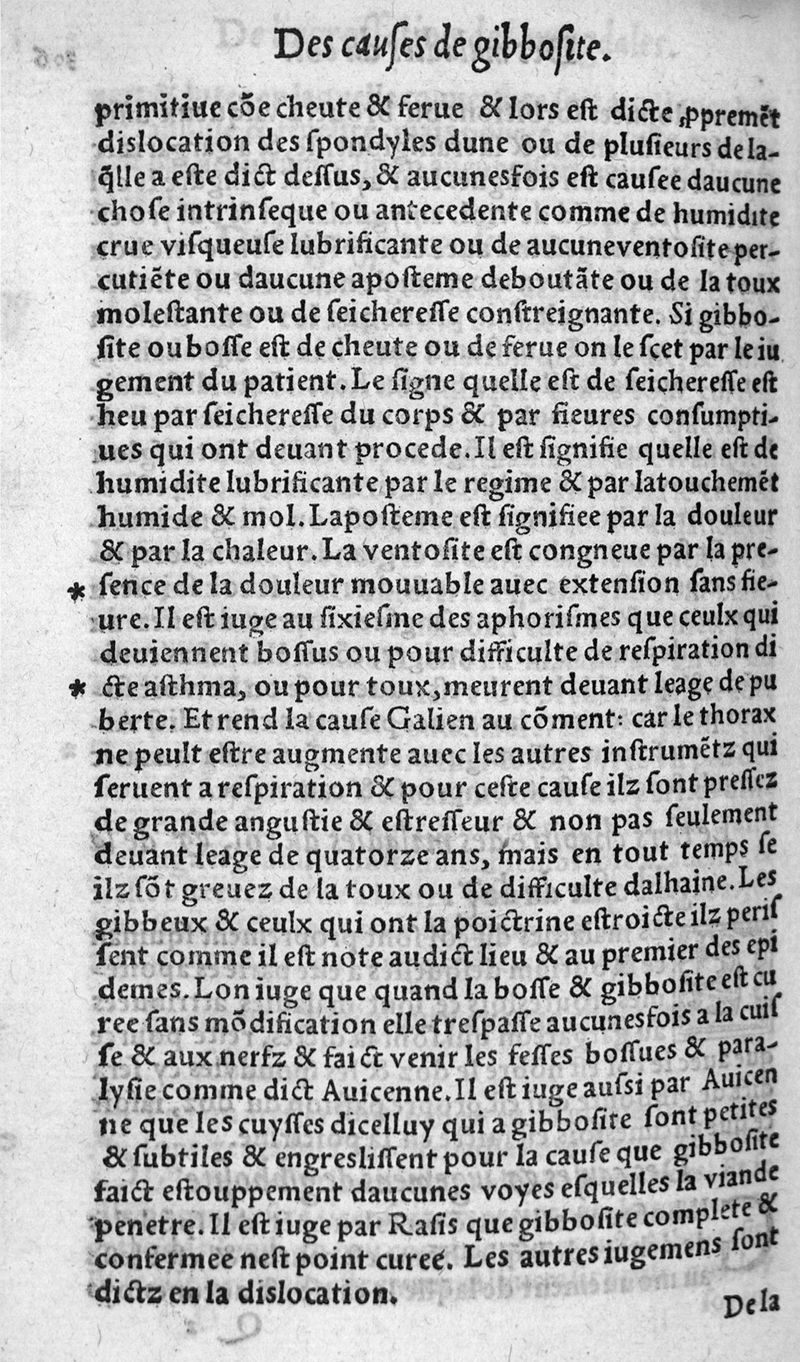 Des cauſes de gibboſite.
primitiue cõe cheute & ferue & lors eſt dicte ꝓpremẽt
dislocation des ſpondyles dune ou de pluſieurs de la-
q̃lle a eſte dict deſſus, & aucunesfois eſt cauſee daucune
choſe intrinſeque ou antecedente comme de humidite
crue viſqueuſe lubrificante ou de aucuneventoſite per-
cutiẽte ou daucune apoſteme deboutãte ou de la toux
moleſtante ou de ſeichereſſe conſtreignante. Si gibbo-
ſite ou boſſe eſt de cheute ou de ferue on le ſcet par le iu
gement du patient. Le ſigne quelle eſt de ſeichereſſe eſt
heu par ſeichereſſe du corps & par fieures conſumpti-
ues qui ont deuant procede. Il eſt ſignifie quelle eſt de
humidite lubrificante par le regime & par latouchemẽt
humide & mol. Lapoſteme eſt ſignifiee par la douleur
& par la chaleur. La ventoſite eſt congneue par la pre-
* ſence de la douleur mouuable auec extenſion ſans fie-
ure. Il eſt iuge au ſixieſme des aphoriſmes que ceulx qui
deuiennent boſſus ou pour difficulte de reſpiration di
* cte aſthma, ou pour toux, meurent deuant leage de pu
berte. Et rend la cauſe Galien au cõment: car le thorax
ne peult eſtre augmente auec les autres inſtrumẽtz qui
ſeruent a reſpiration & pour ceſte cauſe ilz ſont preſſez
de grande anguſtie & eſtreſſeur & non pas ſeulement
deuant leage de quatorze ans, mais en tout temps ſe
ilz ſõt greuez de la toux ou de difficulte dalhaine. Les
gibbeux & ceulx qui ont la poictrine eſtroicte ilz periſ
ſent comme il eſt note audict lieu & au premier des epi
demes. Lon iuge que quand la boſſe & gibboſite eſt cu
ree ſans mõdification elle treſpaſſe aucunesfois a la cuiſ
ſe & aux nerfz & faict venir les feſſes boſſues & para-
lyſie comme dict Auicenne. Il eſt iuge auſsi par Auicen
ne que les cuyſſes dicelluy qui a gibboſite ſont petites
& ſubtiles & engresliſſent pour la cauſe que gibboſite
faict eſtouppement daucunes voyes eſquelles la viande
penetre. Il eſt iuge par Raſis que gibboſite complete &
confermee neſt point curee. Les autres iugemens ſont
dictz en la dislocation.
De la